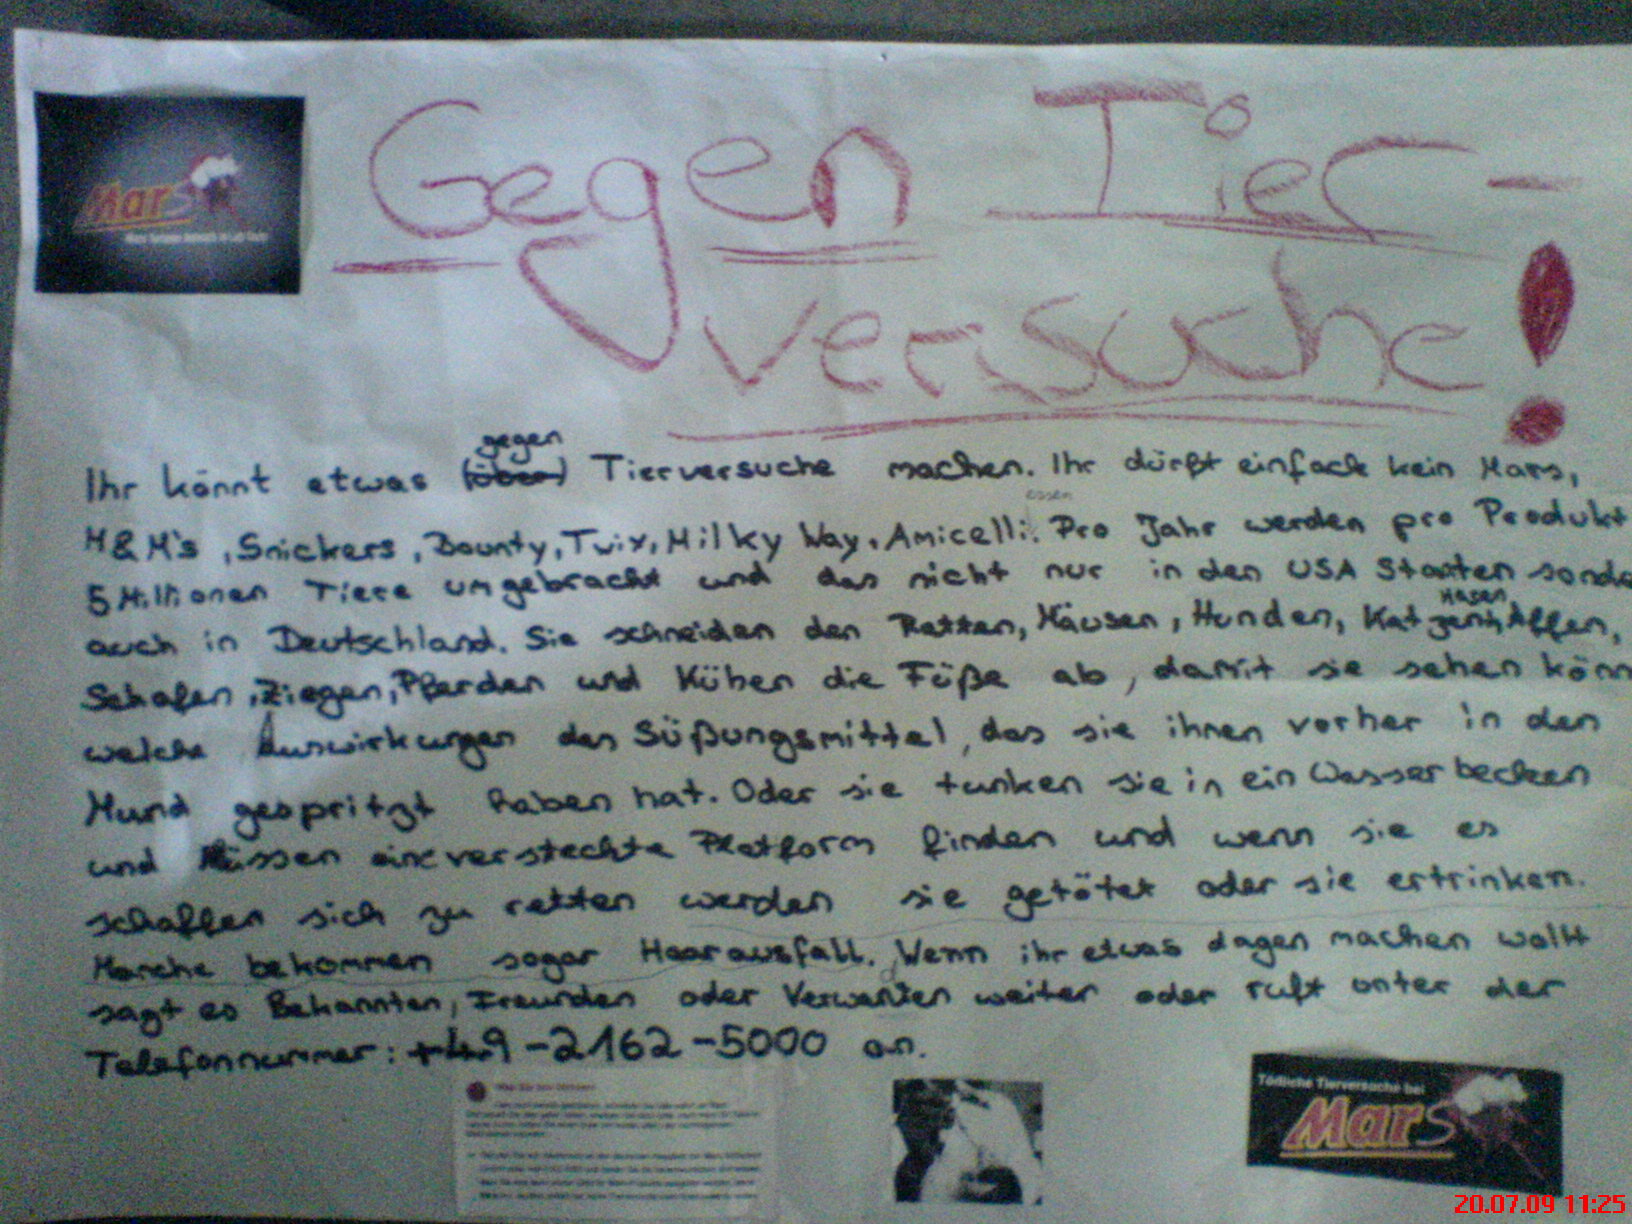 Mars
Gegen Tier-
versuche!
gegen
Ihr könnt etwas (über) Tierversuche machen. Ihr dürft einfach kein Mars,
essen
M&M's, Snickers, Bounty, Twix, Milky Way, Amicelli. Pro Jahr werden pro Produkt
5 Millionen Tiere umgebracht und das nicht nur in den USA Staaten sonde
Hasen,
auch in Deutschland. Sie schneiden den Ratten, Mäusen, Hunden, Katzen, Affen,
Schafen, Ziegen, Pferden und Kühen die Füße ab, damit sie sehen könn
welche Auswirkungen das Süßungsmittel, das sie ihnen vorher in den
Mund gespritzt haben hat. Oder sie tunken sie in ein Wasserbecken
und Müssen eine versteckte Platform finden und wenn sie es
schaffen sich zu retten werden sie getötet oder sie ertrinken.
Manche bekommen sogar Haarausfall. Wenn ihr etwas dagen machen wollt
sagt es Bekannten, Freunden oder Verwanten weiter oder ruft unter der
Telefonnummer: +49-2162-5000 an.
Tödliche Tierversuche bei
Mars
20.07.09 11:25